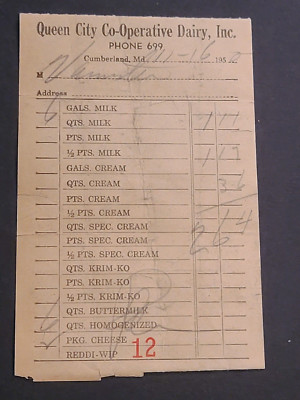 Queen City Co-Operative Dairy, Inc.
PHONE 699
Cumberland, Md. 11-16 195
M
Address
6 GALS. MILK
QTS. MILK 1 17
PTS. MILK
½ PTS. MILK 1 17
GALS. CREAM
QTS. CREAM 36
PTS. CREAM
½ PTS. CREAM 264
QTS. SPEC. CREAM
PTS. SPEC. CREAM
½ PTS. SPEC. CREAM
QTS. KRIM-KO
PTS. KRIM-KO
½ PTS. KRIM-KO
QTS. BUTTERMILK
QTS. HOMOGENIZED
PKG. CHEESE
REDDI-WIP 12